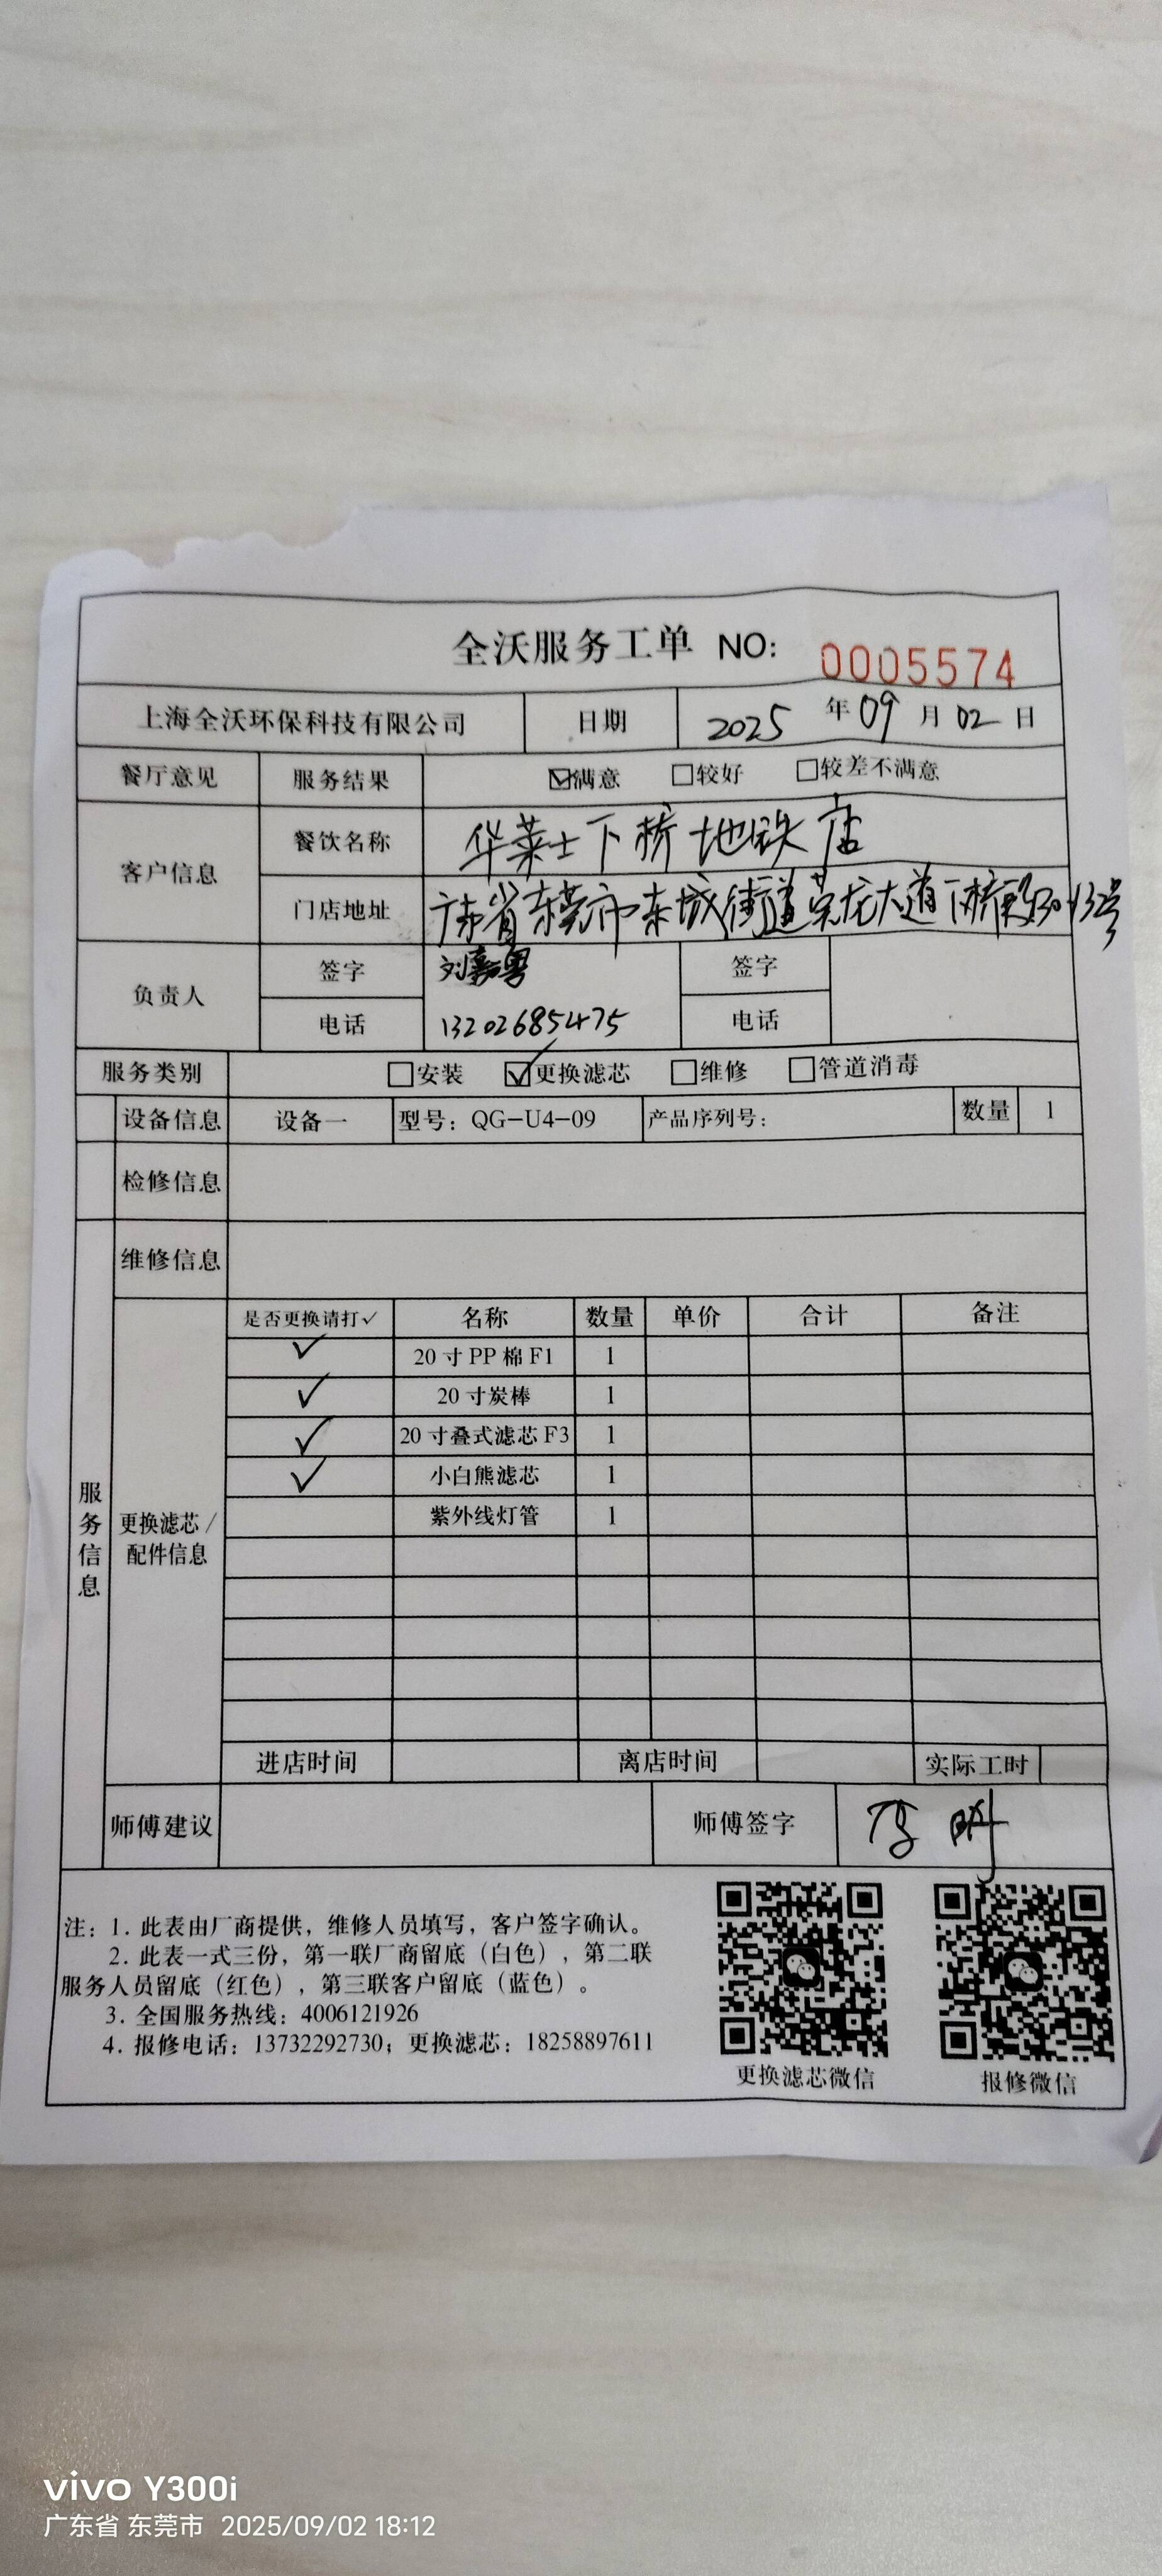 全沃服务工单 NO: 0005574
上海全沃环保科技有限公司 日期 2025 年 09 月 02 日
餐厅意见 服务结果 ☑满意 □较好 □较差不满意
客户信息 餐饮名称 华莱士下桥地铁店
门店地址 广东省东莞市东城街道莞龙大道下桥段 13号
负责人 签字 刘嘉粤 签字
电话 13202685475 电话
服务类别 □安装 ☑更换滤芯 □维修 □管道消毒
设备信息 设备一 型号: QG-U4-09 产品序列号: 数量 1
检修信息
维修信息
服务信息
更换滤芯/配件信息
是否更换请打✓ 名称 数量 单价 合计 备注
✓ 20寸PP棉F1 1
✓ 20寸炭棒 1
✓ 20寸叠式滤芯F3 1
✓ 小白熊滤芯 1
紫外线灯管 1
进店时间 离店时间 实际工时
师傅建议 师傅签字
注: 1. 此表由厂商提供, 维修人员填写, 客户签字确认。
2. 此表一式三份, 第一联厂商留底(白色), 第二联
服务人员留底(红色), 第三联客户留底(蓝色)。
3. 全国服务热线: 4006121926
4. 报修电话: 13732292730; 更换滤芯: 18258897611
更换滤芯微信 报修微信
vivo Y300i
广东省 东莞市 2025/09/02 18:12